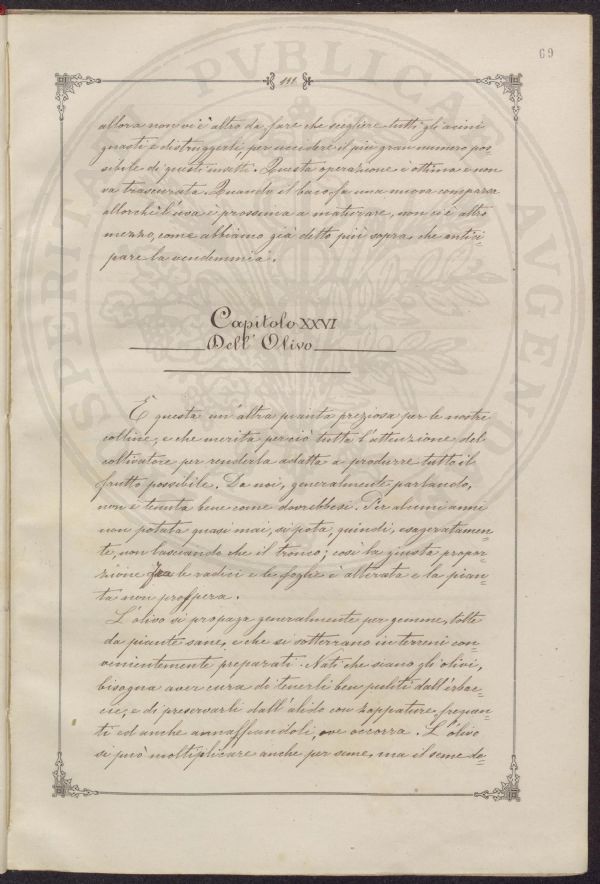 69
111.
allora non vi è altro da fare che scegliere tutti gli acini
guasti e distruggerli, per uccidere il più gran numero pos-
sibile di questi insetti. Questa operazione è ottima e non
va trascurata. Quando il baco fa una nuova comparsa
allorchè l'uva è prossima a maturare, non ci è altro
mezzo, come abbiamo già detto più sopra, che antici-
pare la vendemmia.
Capitolo XXVI
Dell' Olivo
È questa un'altra pianta preziosa per le nostre
colline, e che merita perciò tutta l'attenzione del
coltivatore per renderla adatta a produrre tutto il
frutto possibile. Da noi, generalmente parlando,
non è tenuta bene come dovrebbesi. Per alcuni anni
non potata quasi mai, si pota, quindi, esageratamen-
te, non lasciando che il tronco; così la giusta propor-
zione fra le radici e le foglie è alterata e la pian-
ta non prospera.
L'olivo si propaga generalmente per gemme, tolte
da piante sane, e che si sotterrano in terreni con-
venientemente preparati. Nati che siano gli olivi,
bisogna aver cura di tenerli ben puliti dall'erbac-
cie, e di preservarli dall'alido con zappature frequen-
ti ed anche annaffiandoli, ove occorra. L'olivo
si può moltiplicare anche per seme, ma il seme de-
PVBLICAE
AVGENDAE
SPERITATI